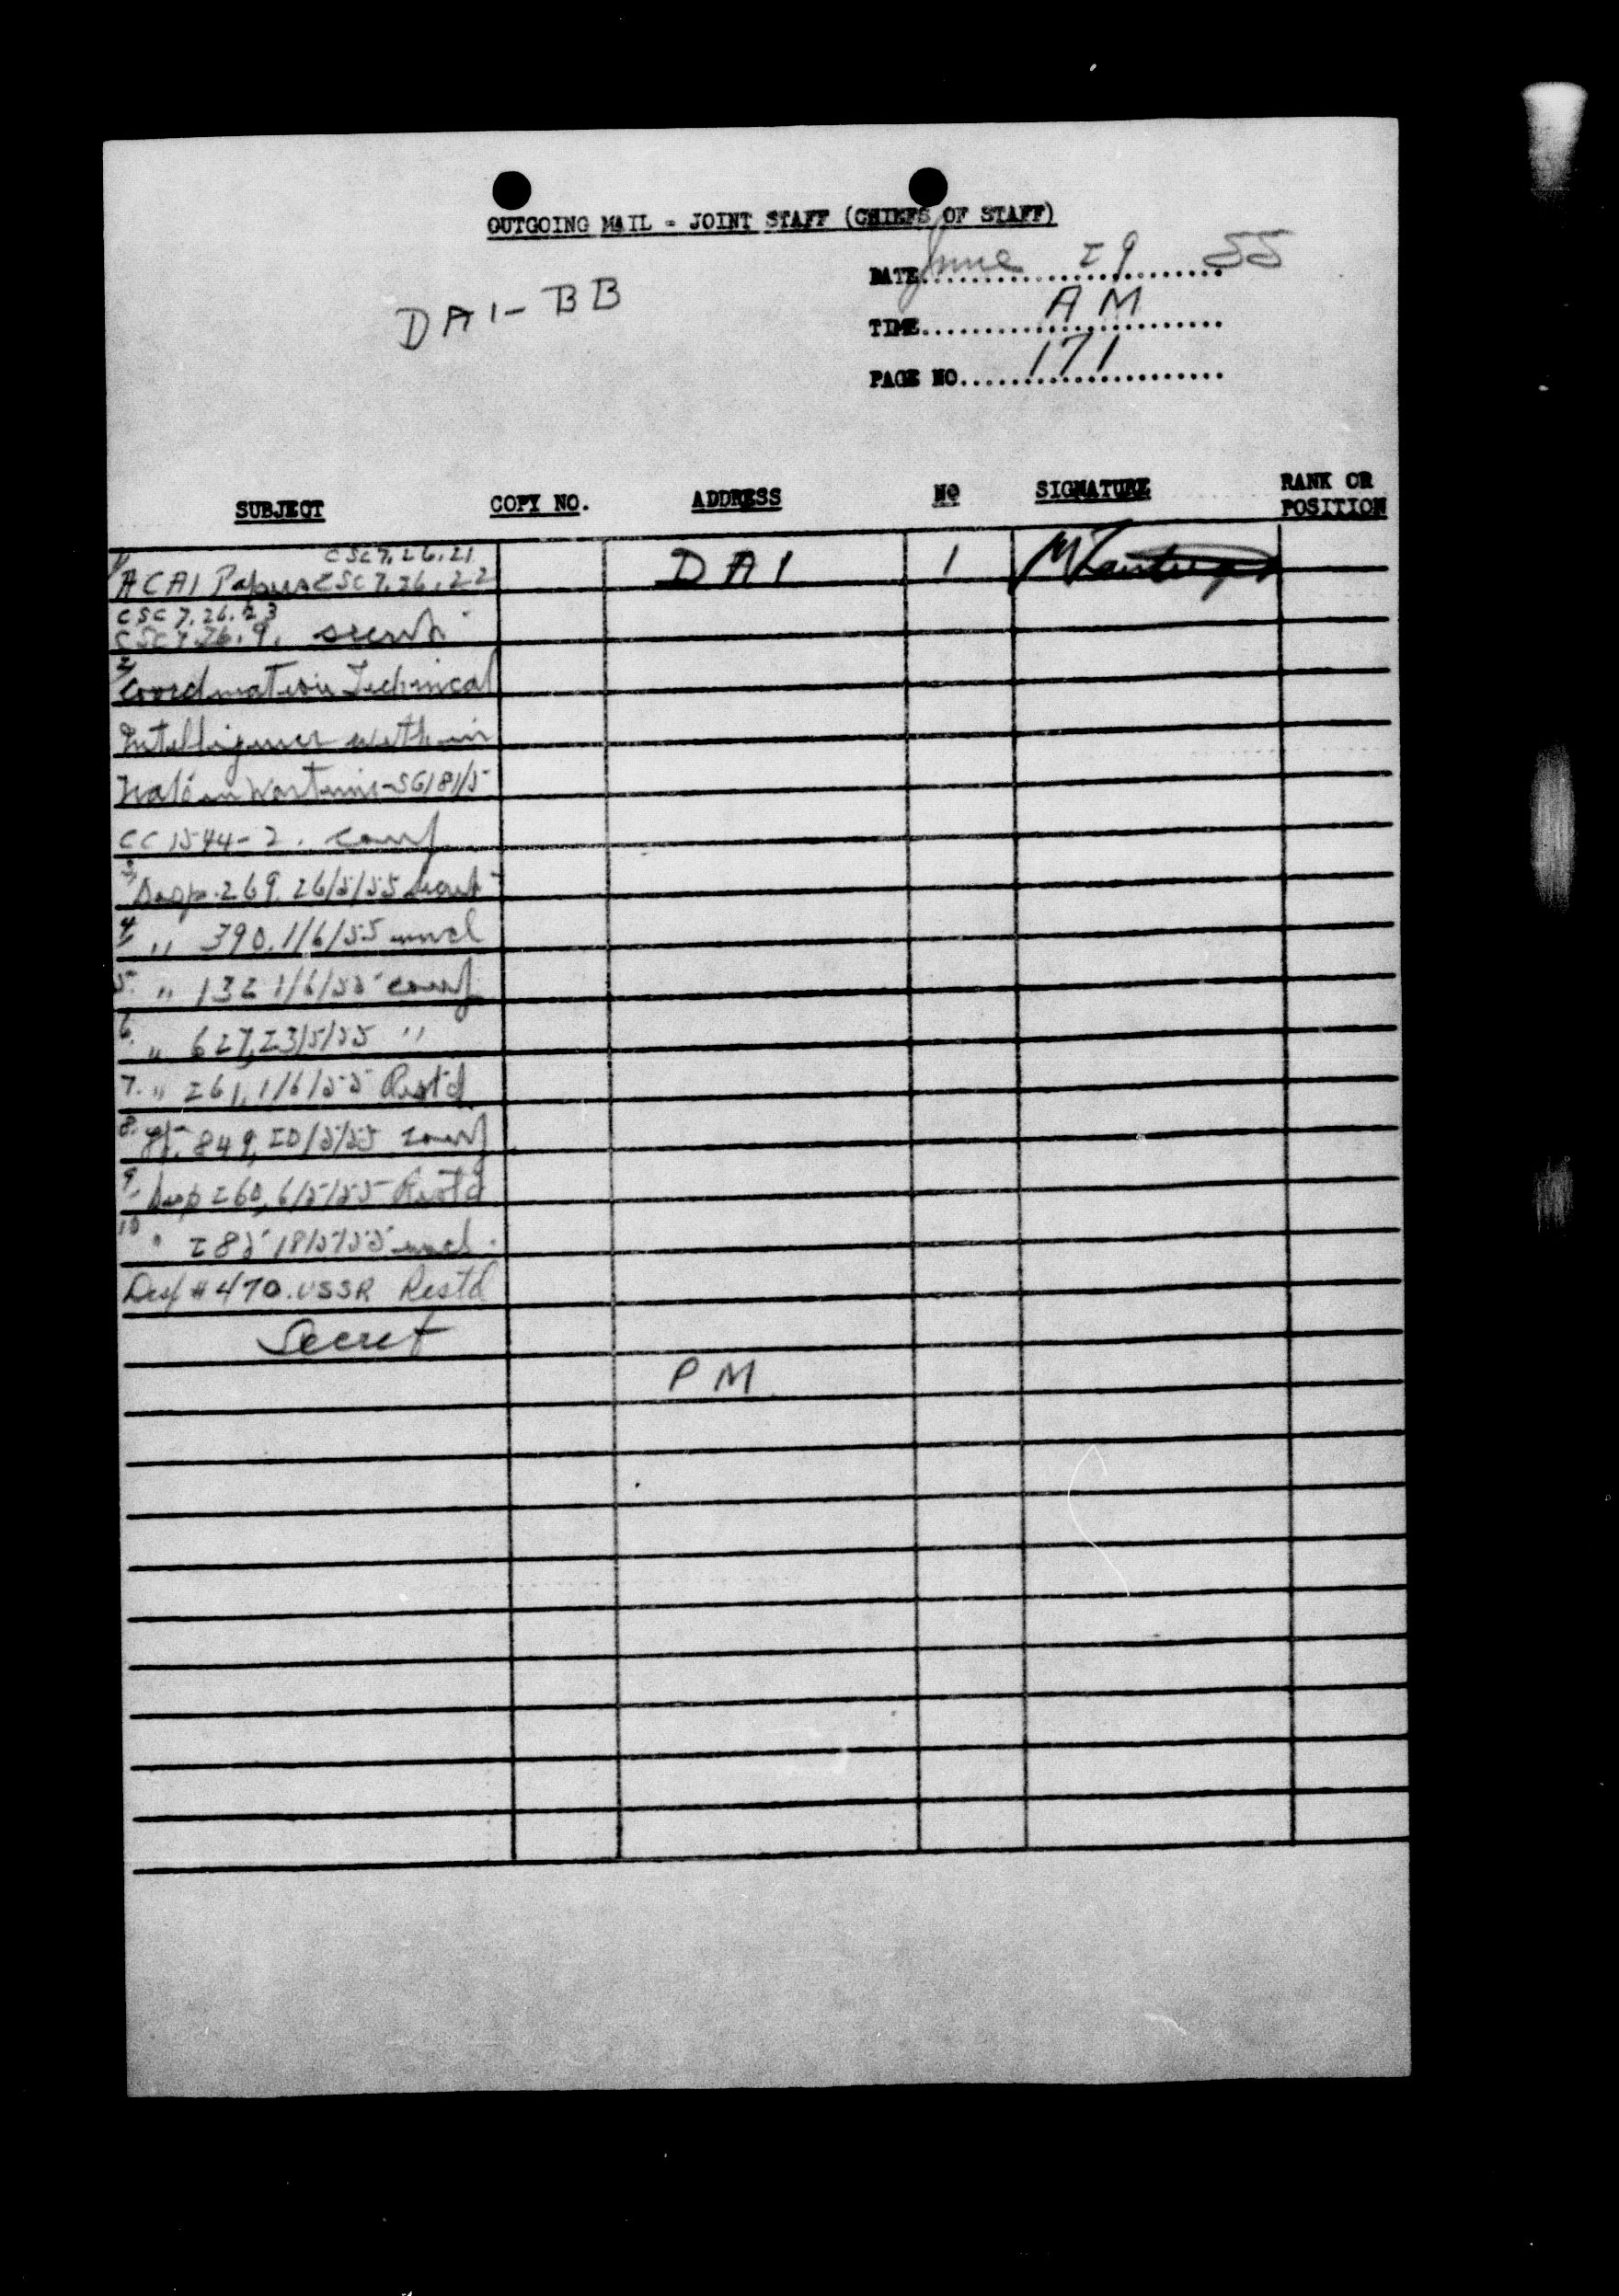 OUTGOING MAIL - JOINT STAFF (CHIEFS OF STAFF)
DATE June 29 55
DAI-BB
TIME AM
PAGE NO 171
SUBJECT COPY NO. ADDRESS NO SIGNATURE RANK OR POSITION
1/ CSC 7.26.21
ACAI Papers CSC 7.26.22 DAI 1
CSC 7.26.23
CSC 7.26.9. secret
2/ Coordination Technical
Intelligence within
Wartime - SG181/5
CC 1544-2. conf
3/ Desp. 269. 26/5/55 secret
4/ " 390. 1/6/55 uncl
5. " 132 1/6/55 conf
6. " 627, 23/5/55 "
7. " 261, 1/6/55 Rest'd
8. 849, 20/5/55 conf
9. Desp 260, 6/5/55 Rest'd
10 " 285 18/5/55 uncl.
# 470. USSR Restd
Secret
PM